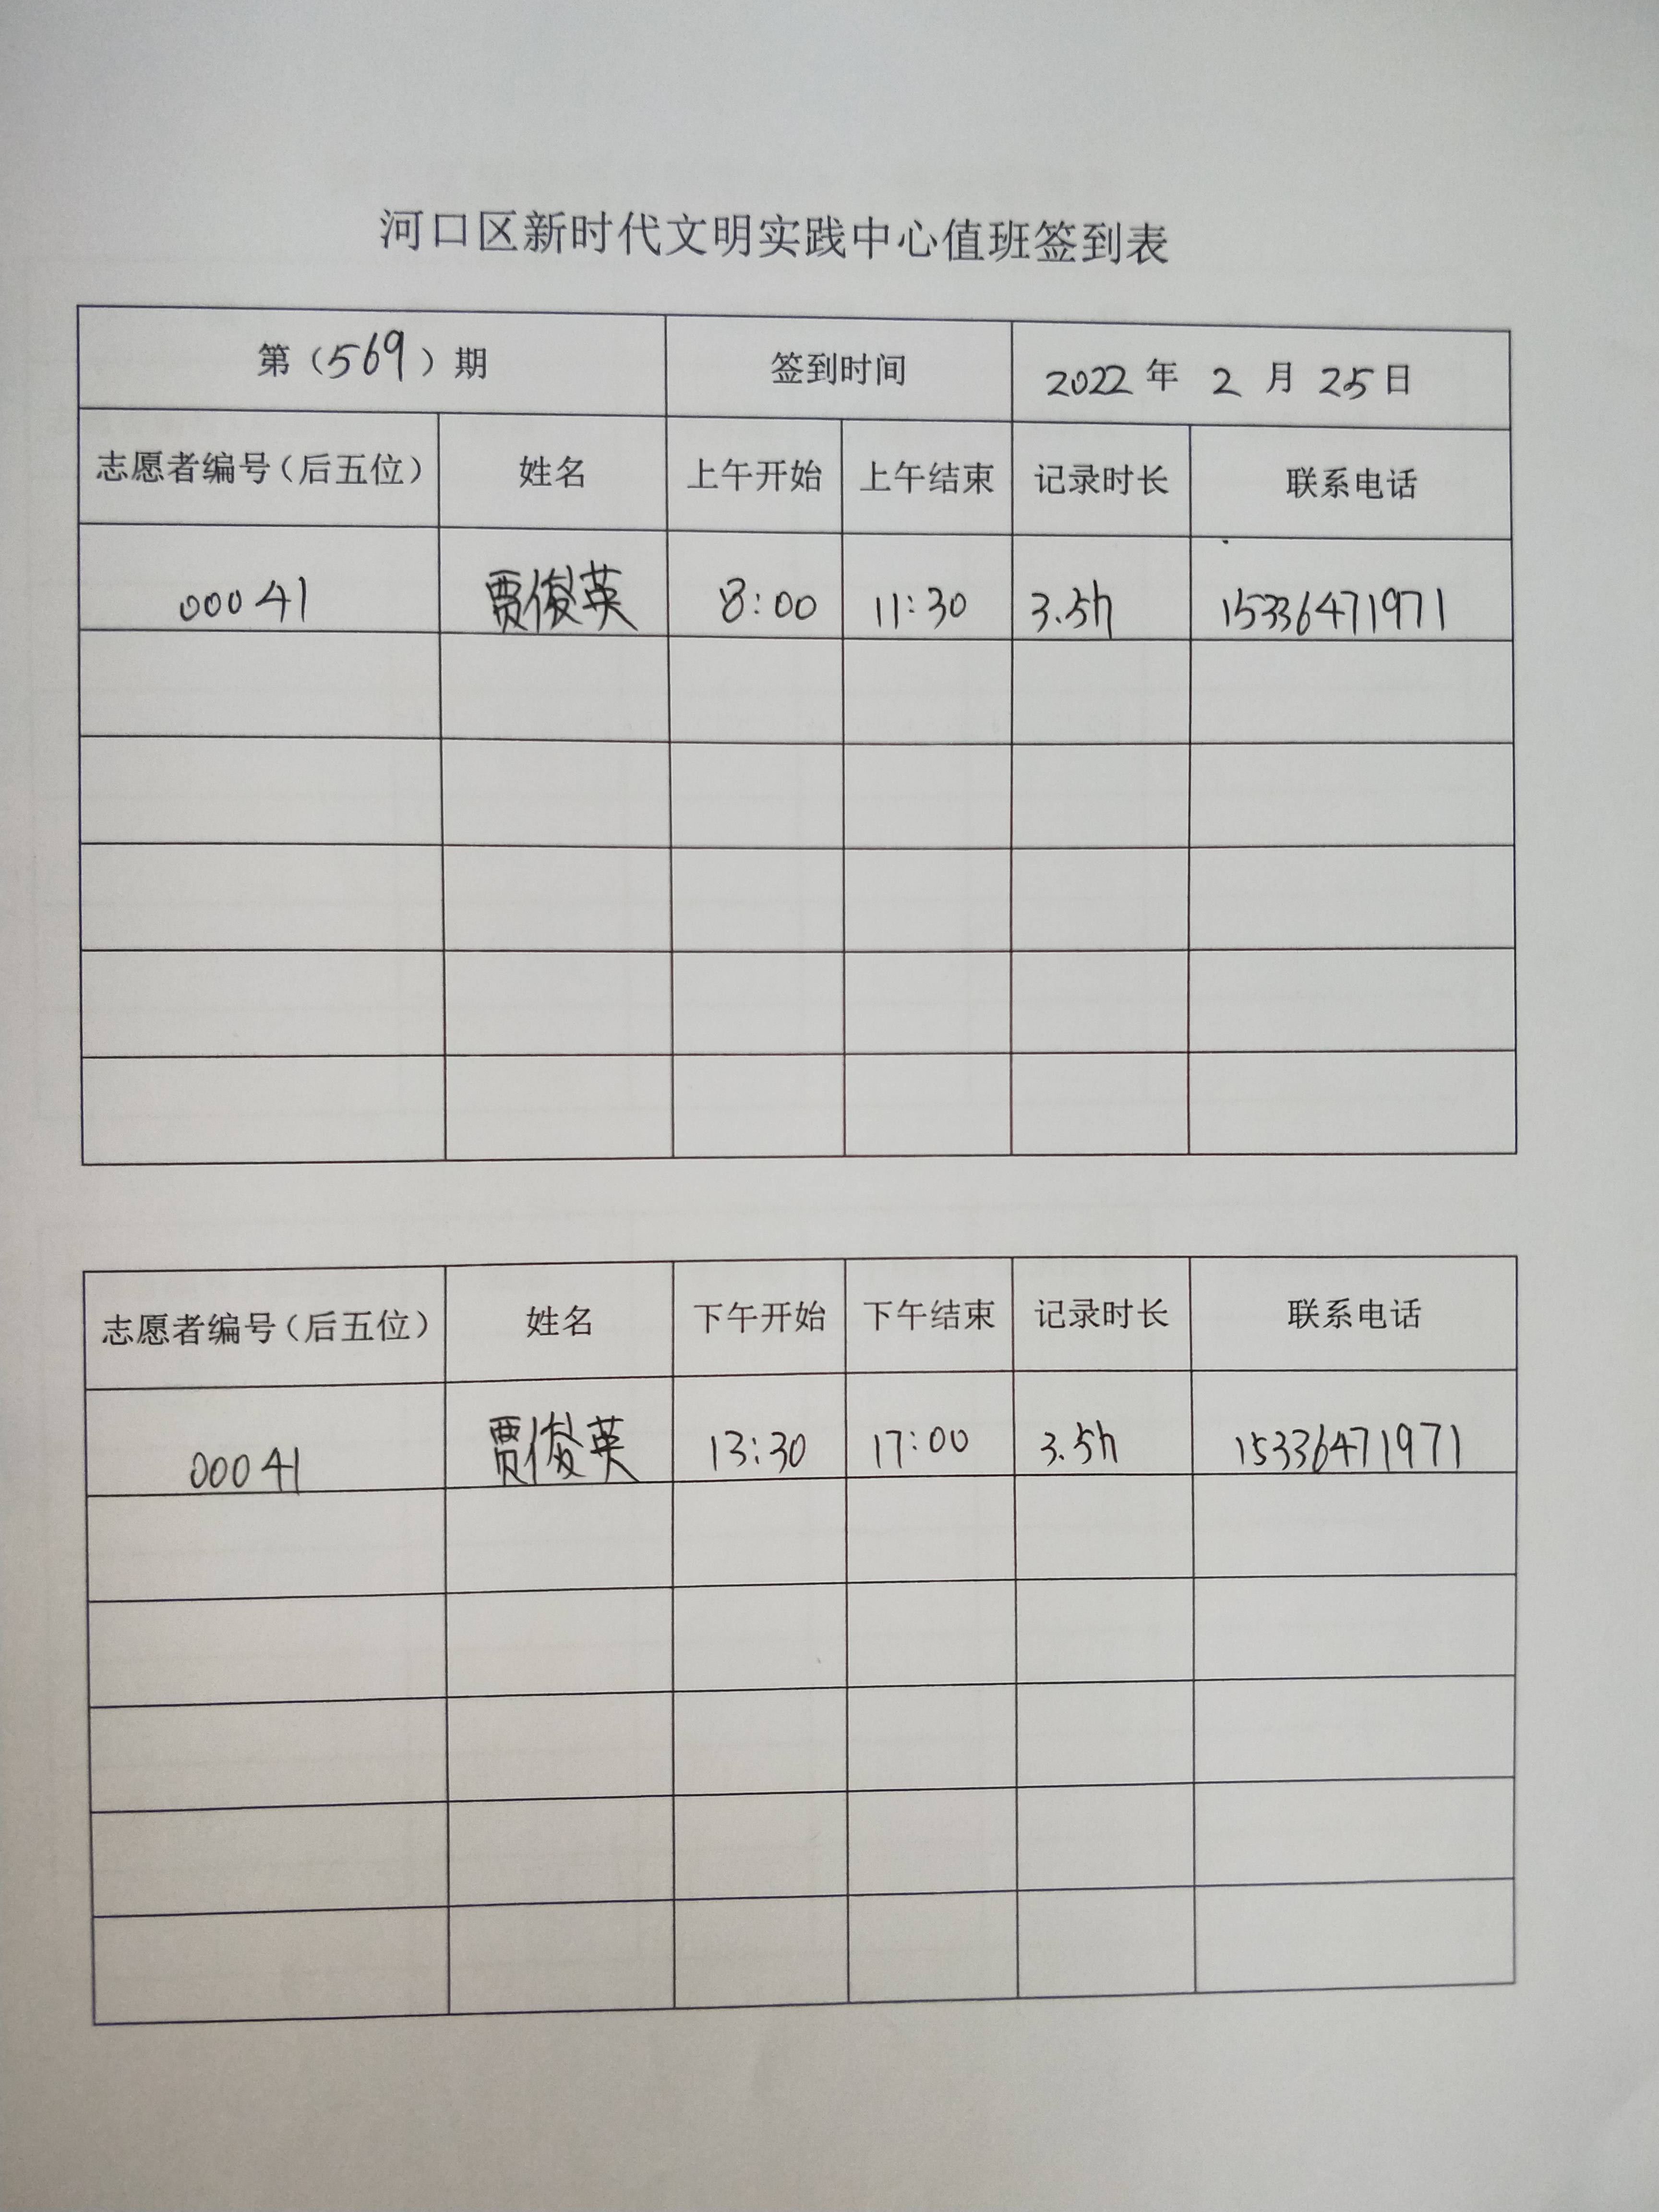 河口区新时代文明实践中心值班签到表
第（569）期 签到时间 2022年 2 月 25日
志愿者编号（后五位） 姓名 上午开始 上午结束 记录时长 联系电话
00041 贾俊英 8:00 11:30 3.5h 15336471971
志愿者编号（后五位） 姓名 下午开始 下午结束 记录时长 联系电话
00041 贾俊英 13:30 17:00 3.5h 15336471971